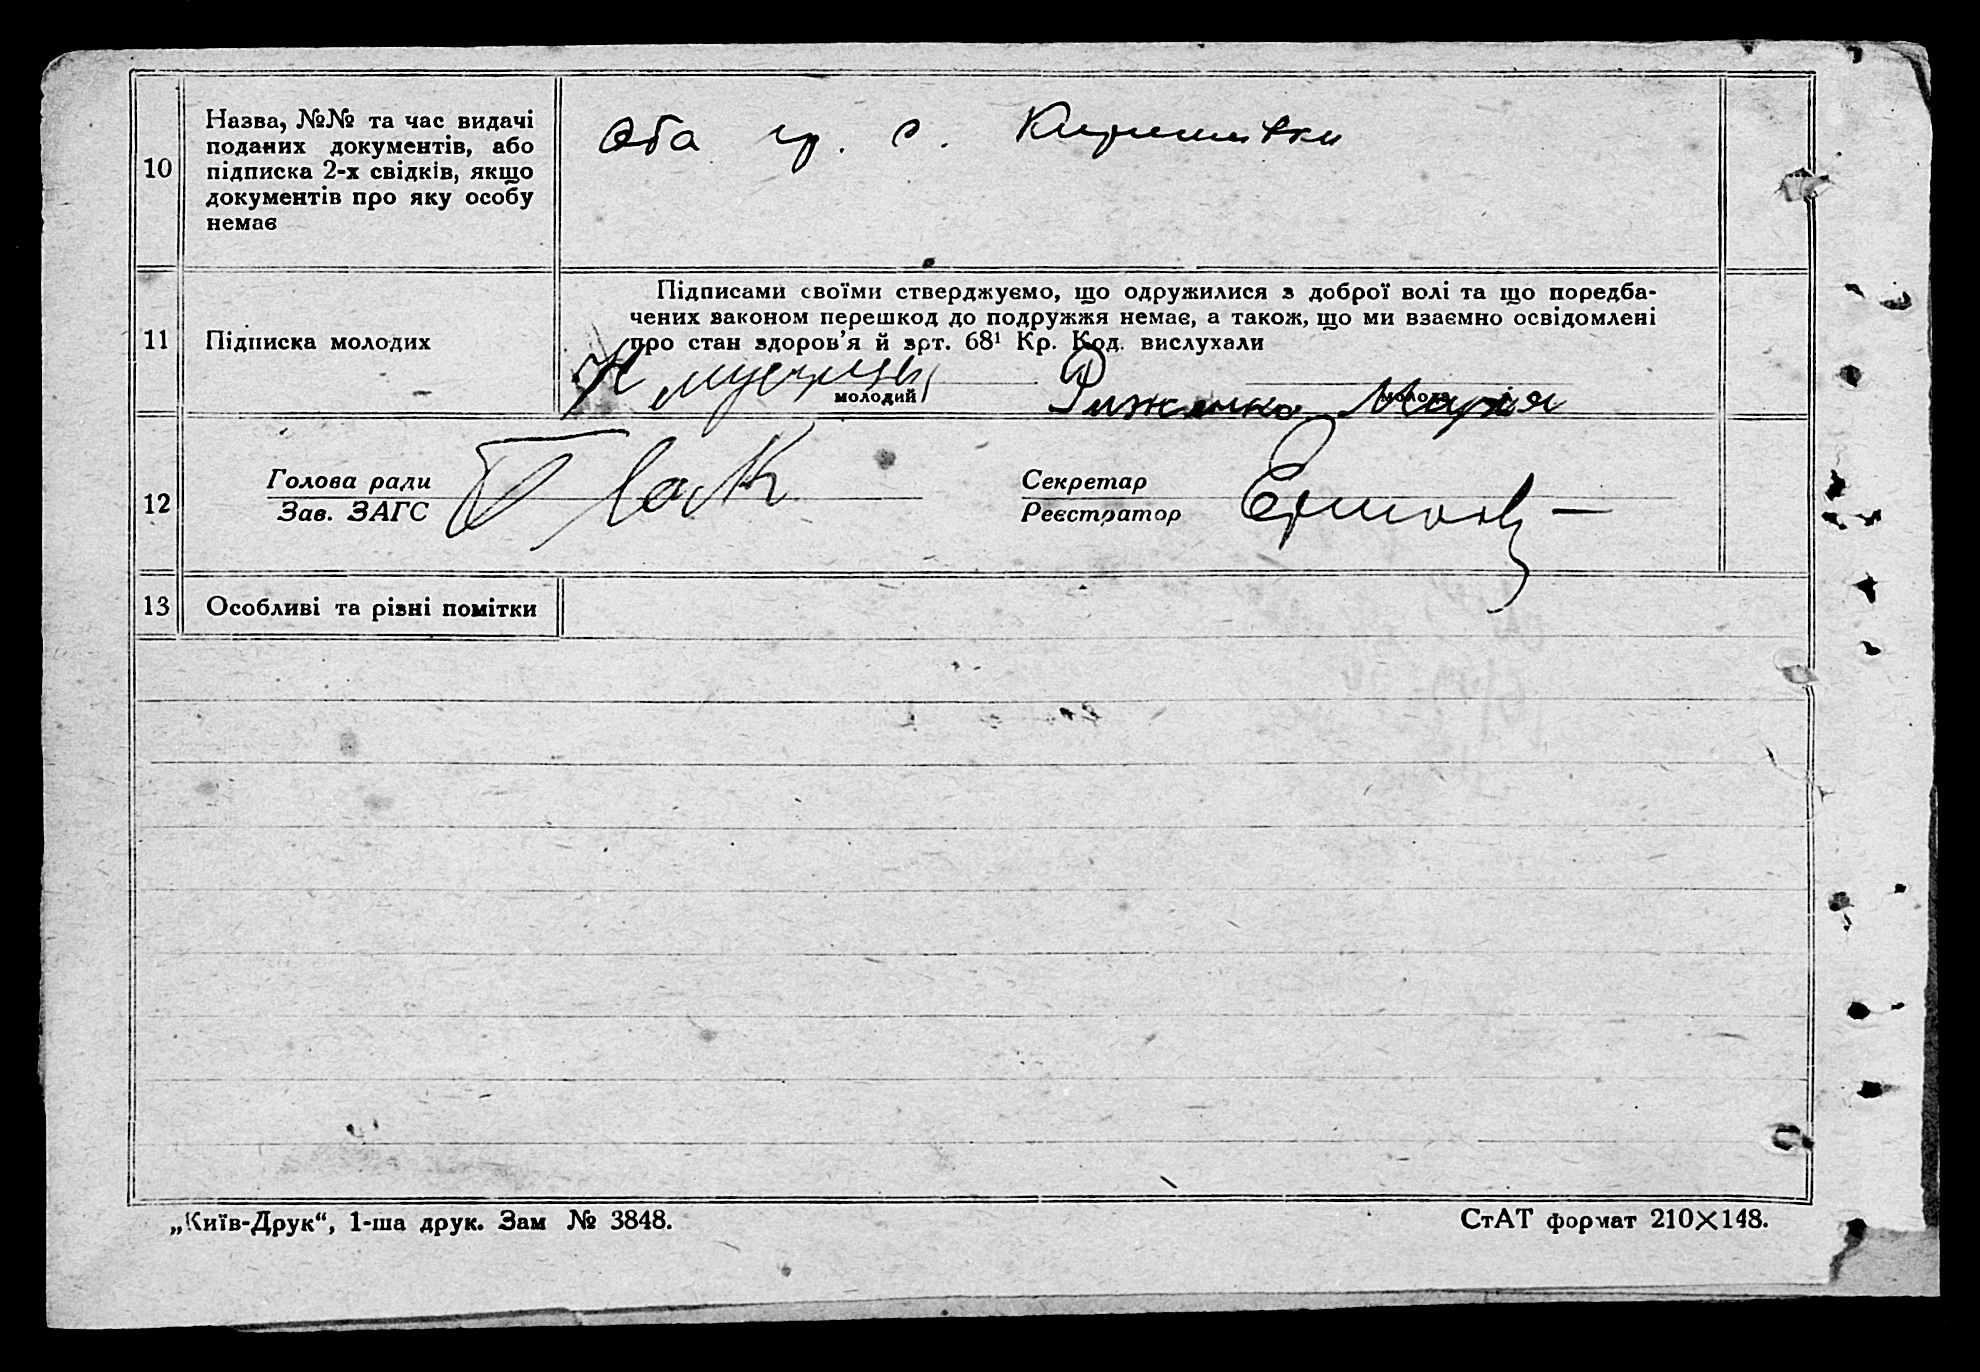 10
Назва, №№ та час видачі
поданих документів, або
підписка 2-х свідків, якщо
документів про яку особу
немає
Оба гр. с.
11
Підписка молодих
Підписами своїми стверджуємо, що одружилися з доброї волі та що поредба-
чених законом перешкод до подружжя немає, а також, що ми взаємно освідомлені
про стан здоров'я й арт. 68¹ Кр. Код. вислухали
молодий
молода
Риженко Марія
12
Голова ради
Зав. ЗАГС
Секретар
Реєстратор
13
Особливі та різні помітки
„Київ-Друк“, 1-ша друк. Зам № 3848.
СтАТ формат 210×148.